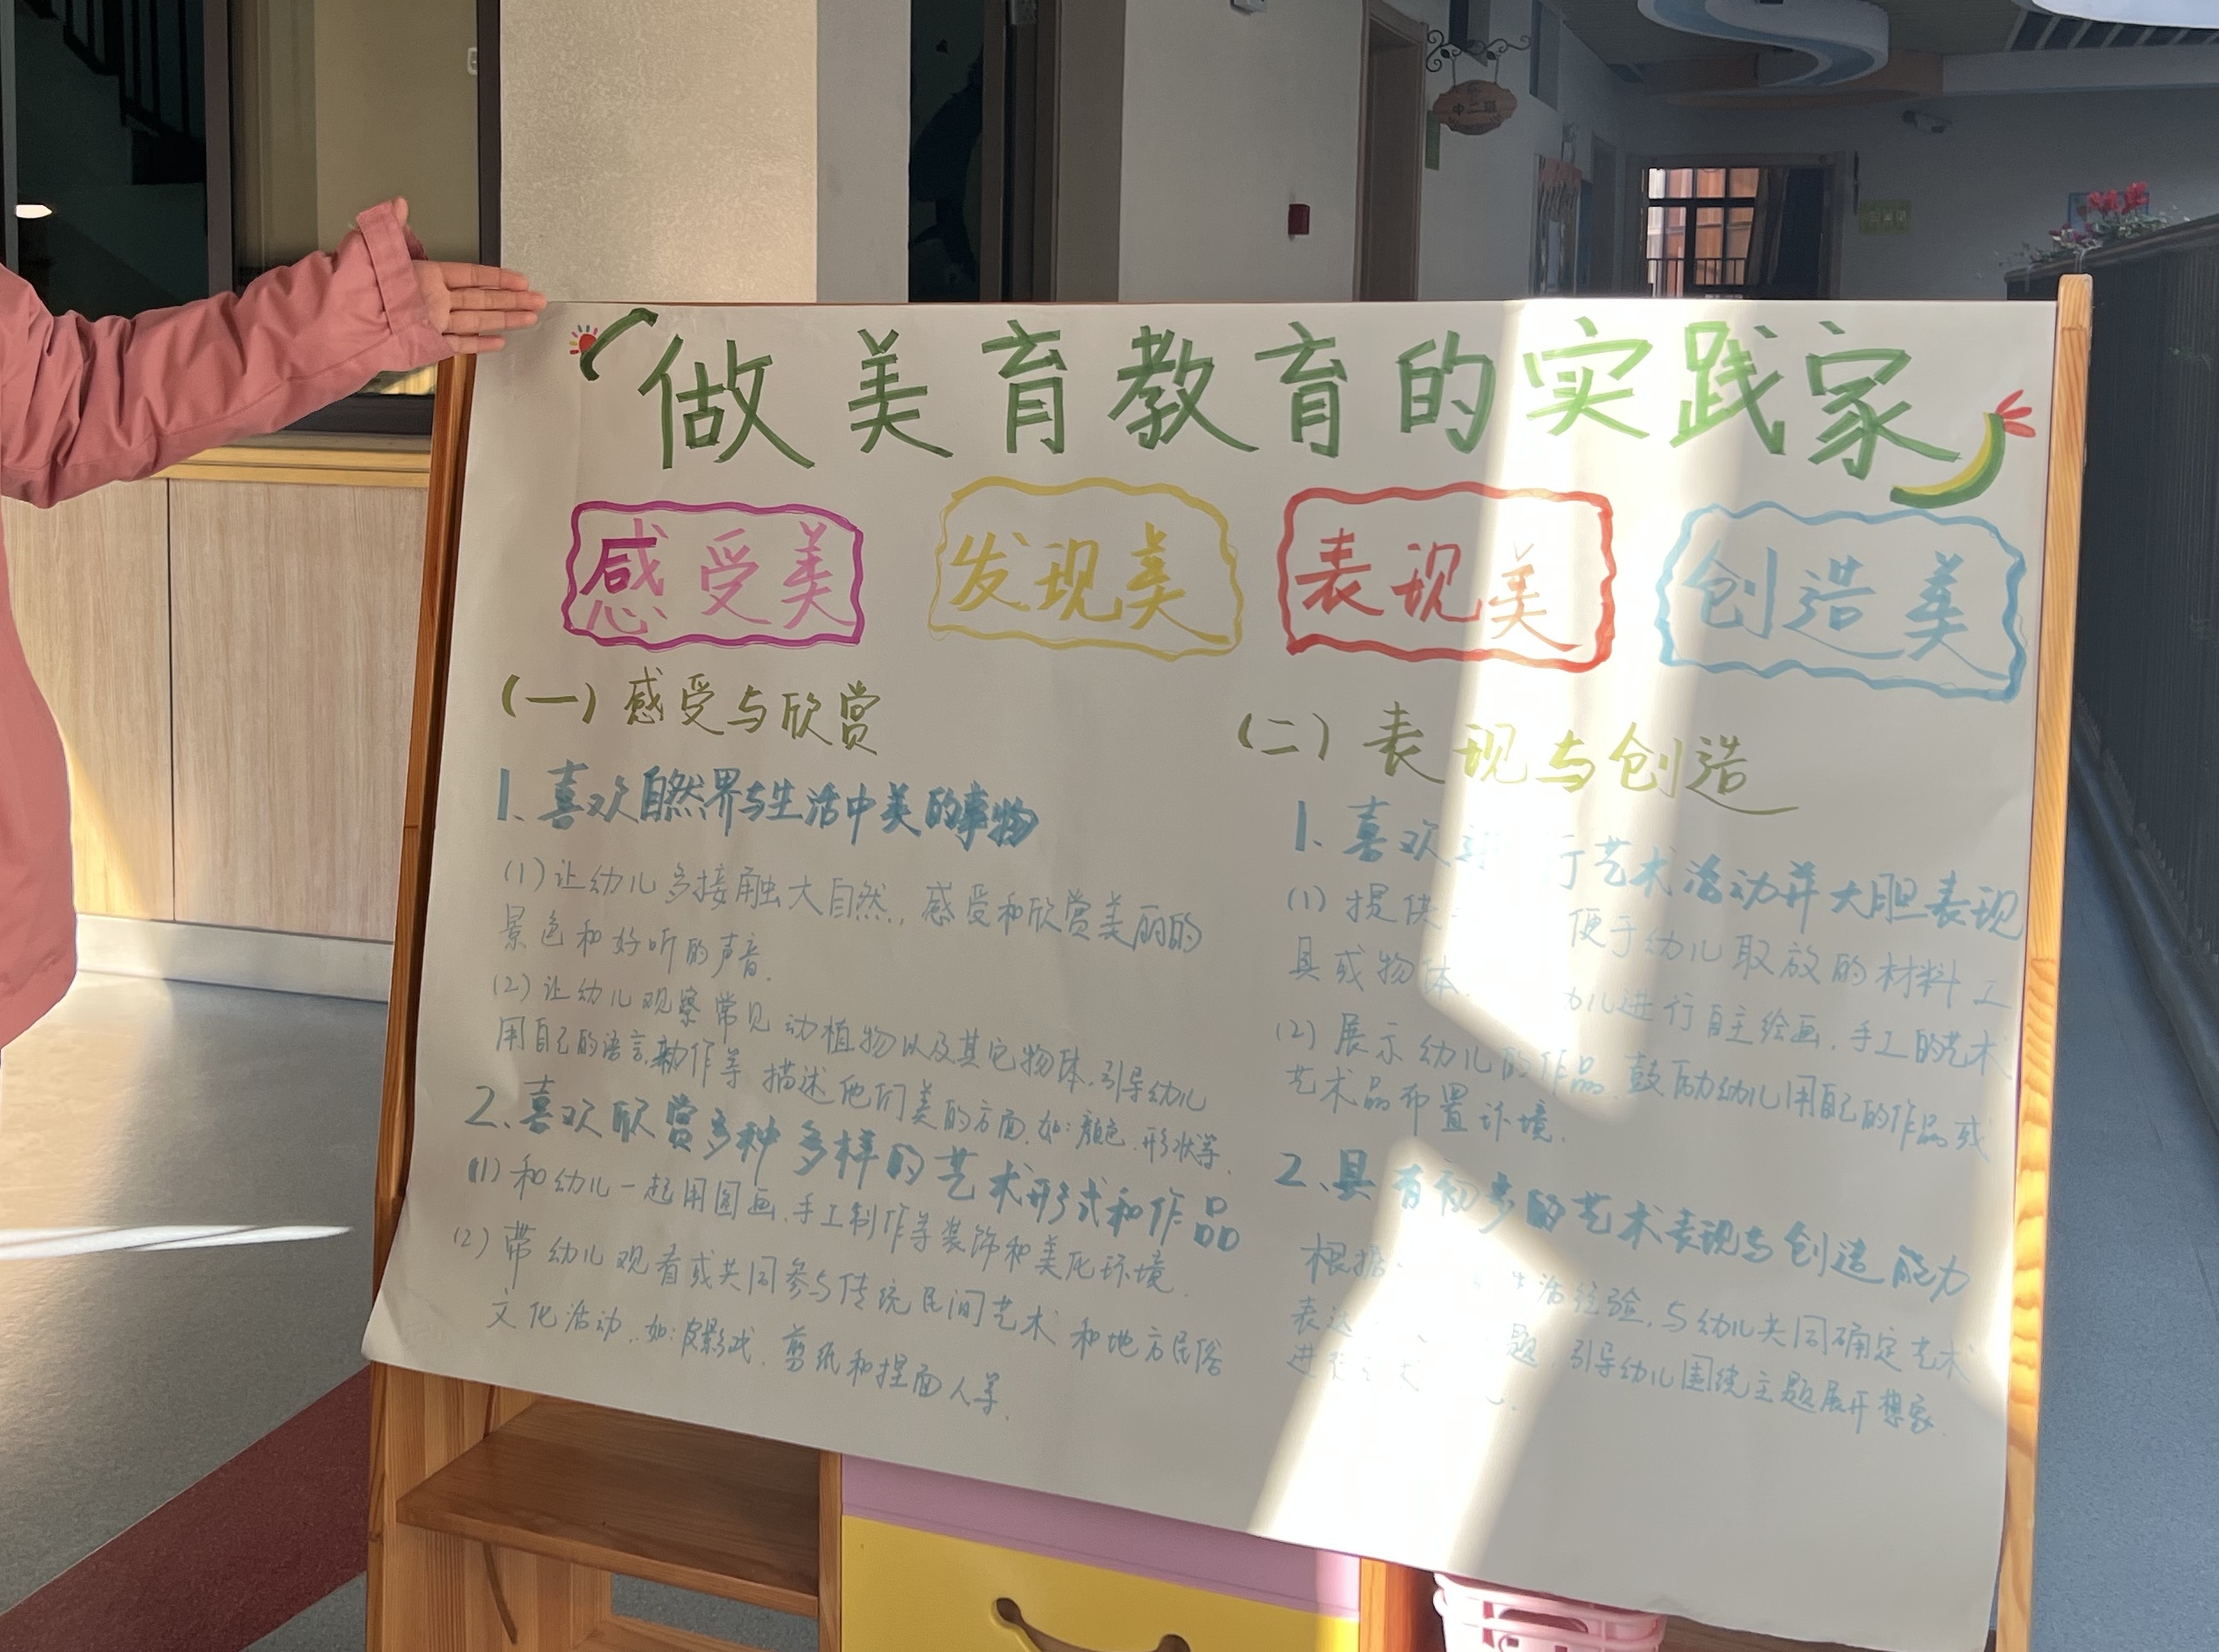 中二班
做美育教育的实践家
感受美
发现美
表现美
创造美
(一)感受与欣赏
1、喜欢自然界与生活中美的事物
(1)让幼儿多接触大自然,感受和欣赏美丽的
景色和好听的声音.
(2)让幼儿观察常见动植物以及其它物体,引导幼儿
用自己的语言,动作等描述他们美的方面,如:颜色、形状等.
2、喜欢欣赏多种多样的艺术形式和作品
(1)和幼儿一起用图画、手工制作等装饰和美化环境.
(2)带幼儿观看或共同参与传统民间艺术和地方民俗
文化活动,如:皮影戏、剪纸和捏面人等.
(二)表现与创造
1、喜欢 行艺术活动并大胆表现
(1)提供 便于幼儿取放的材料工
具或物体, 幼儿进行自主绘画、手工的艺术
(2)展示幼儿的作品,鼓励幼儿用自己的作品或
艺术品布置环境.
2、具有初步的艺术表现与创造能力
根据 生活经验,与幼儿共同确定艺术
表达 题,引导幼儿围绕主题展开想象
进行